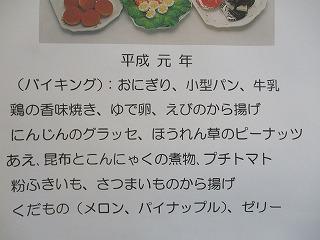 平成 元 年
（バイキング）：おにぎり、小型パン、牛乳
鶏の香味焼き、ゆで卵、えびのから揚げ
にんじんのグラッセ、ほうれん草のピーナッツ
あえ、昆布とこんにゃくの煮物、プチトマト
粉ふきいも、さつまいものから揚げ
くだもの（メロン、パイナップル）、ゼリー